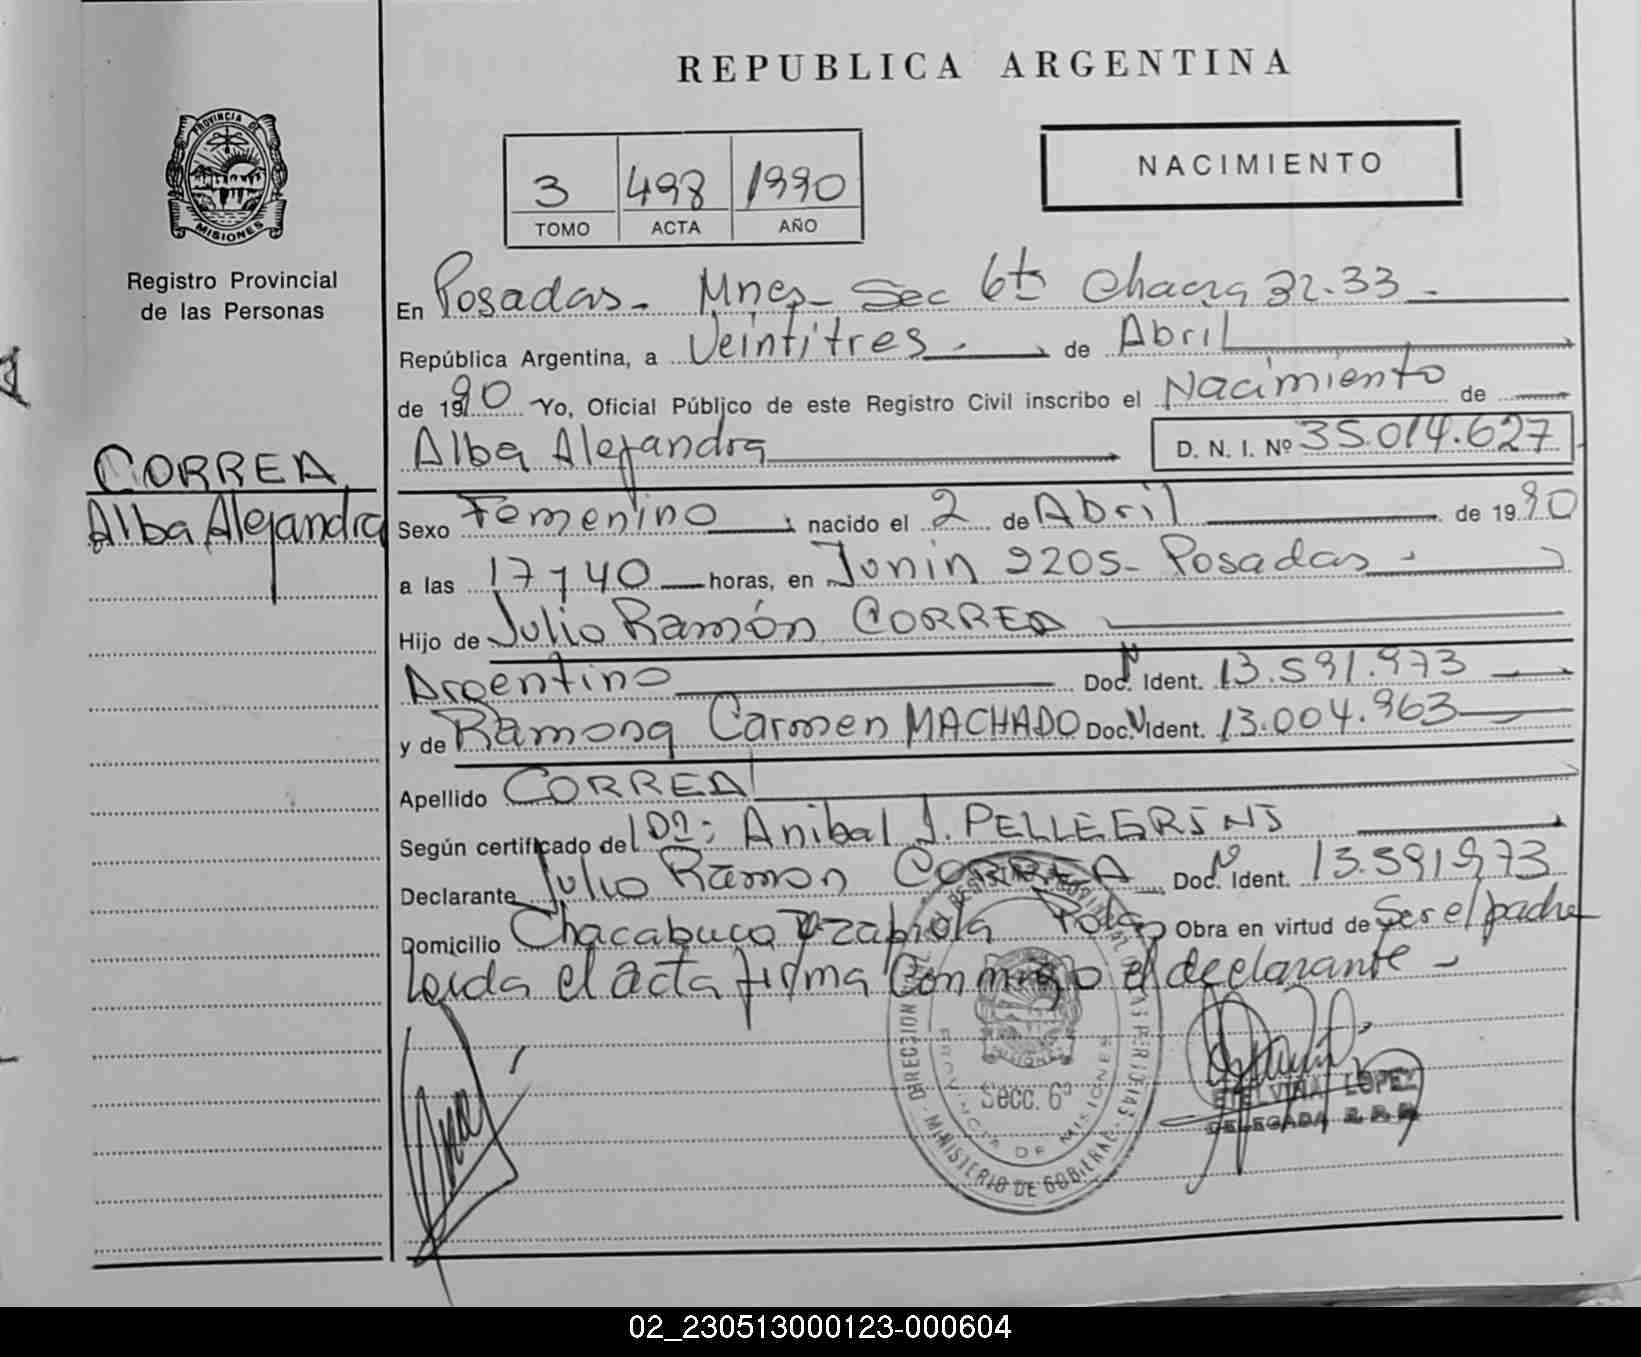 REPUBLICA ARGENTINA
PROVINCIA DE
MISIONES
Registro Provincial
de las Personas
NACIMIENTO
3 498 1990
TOMO ACTA AÑO
En Posadas - Mnes - Sec 6ta Chacra 32-33 -
República Argentina, a Veintitres - de Abril
de 1990 Yo, Oficial Público de este Registro Civil inscribo el Nacimiento de
Alba Alejandra D. N. I. Nº 35.014.627
CORREA
Alba Alejandra
Sexo Femenino nacido el 2 de Abril de 1990
a las 17 y 40 horas, en Junin 2205 - Posadas -
Hijo de Julio Ramón CORREA
Argentino Doc. N Ident. 13.591.973
y de Ramona Carmen MACHADO Doc. N Ident. 13.004.963
Apellido CORREA
Según certificado del Dr: Anibal J. PELLEGRINI
Declarante Julio Ramon CORREA Doc. N Ident. 13.591973
Domicilio Chacabuco Obra en virtud de Ser el padre
Leida el acta firma Conmigo el declarante -
Secc. 6ª
PROVINCIA DE MISIONES
MINISTERIO DE GOBIERNO
ETELVINA LOPEZ
DELEGADA R. P. P.
02_230513000123-000604